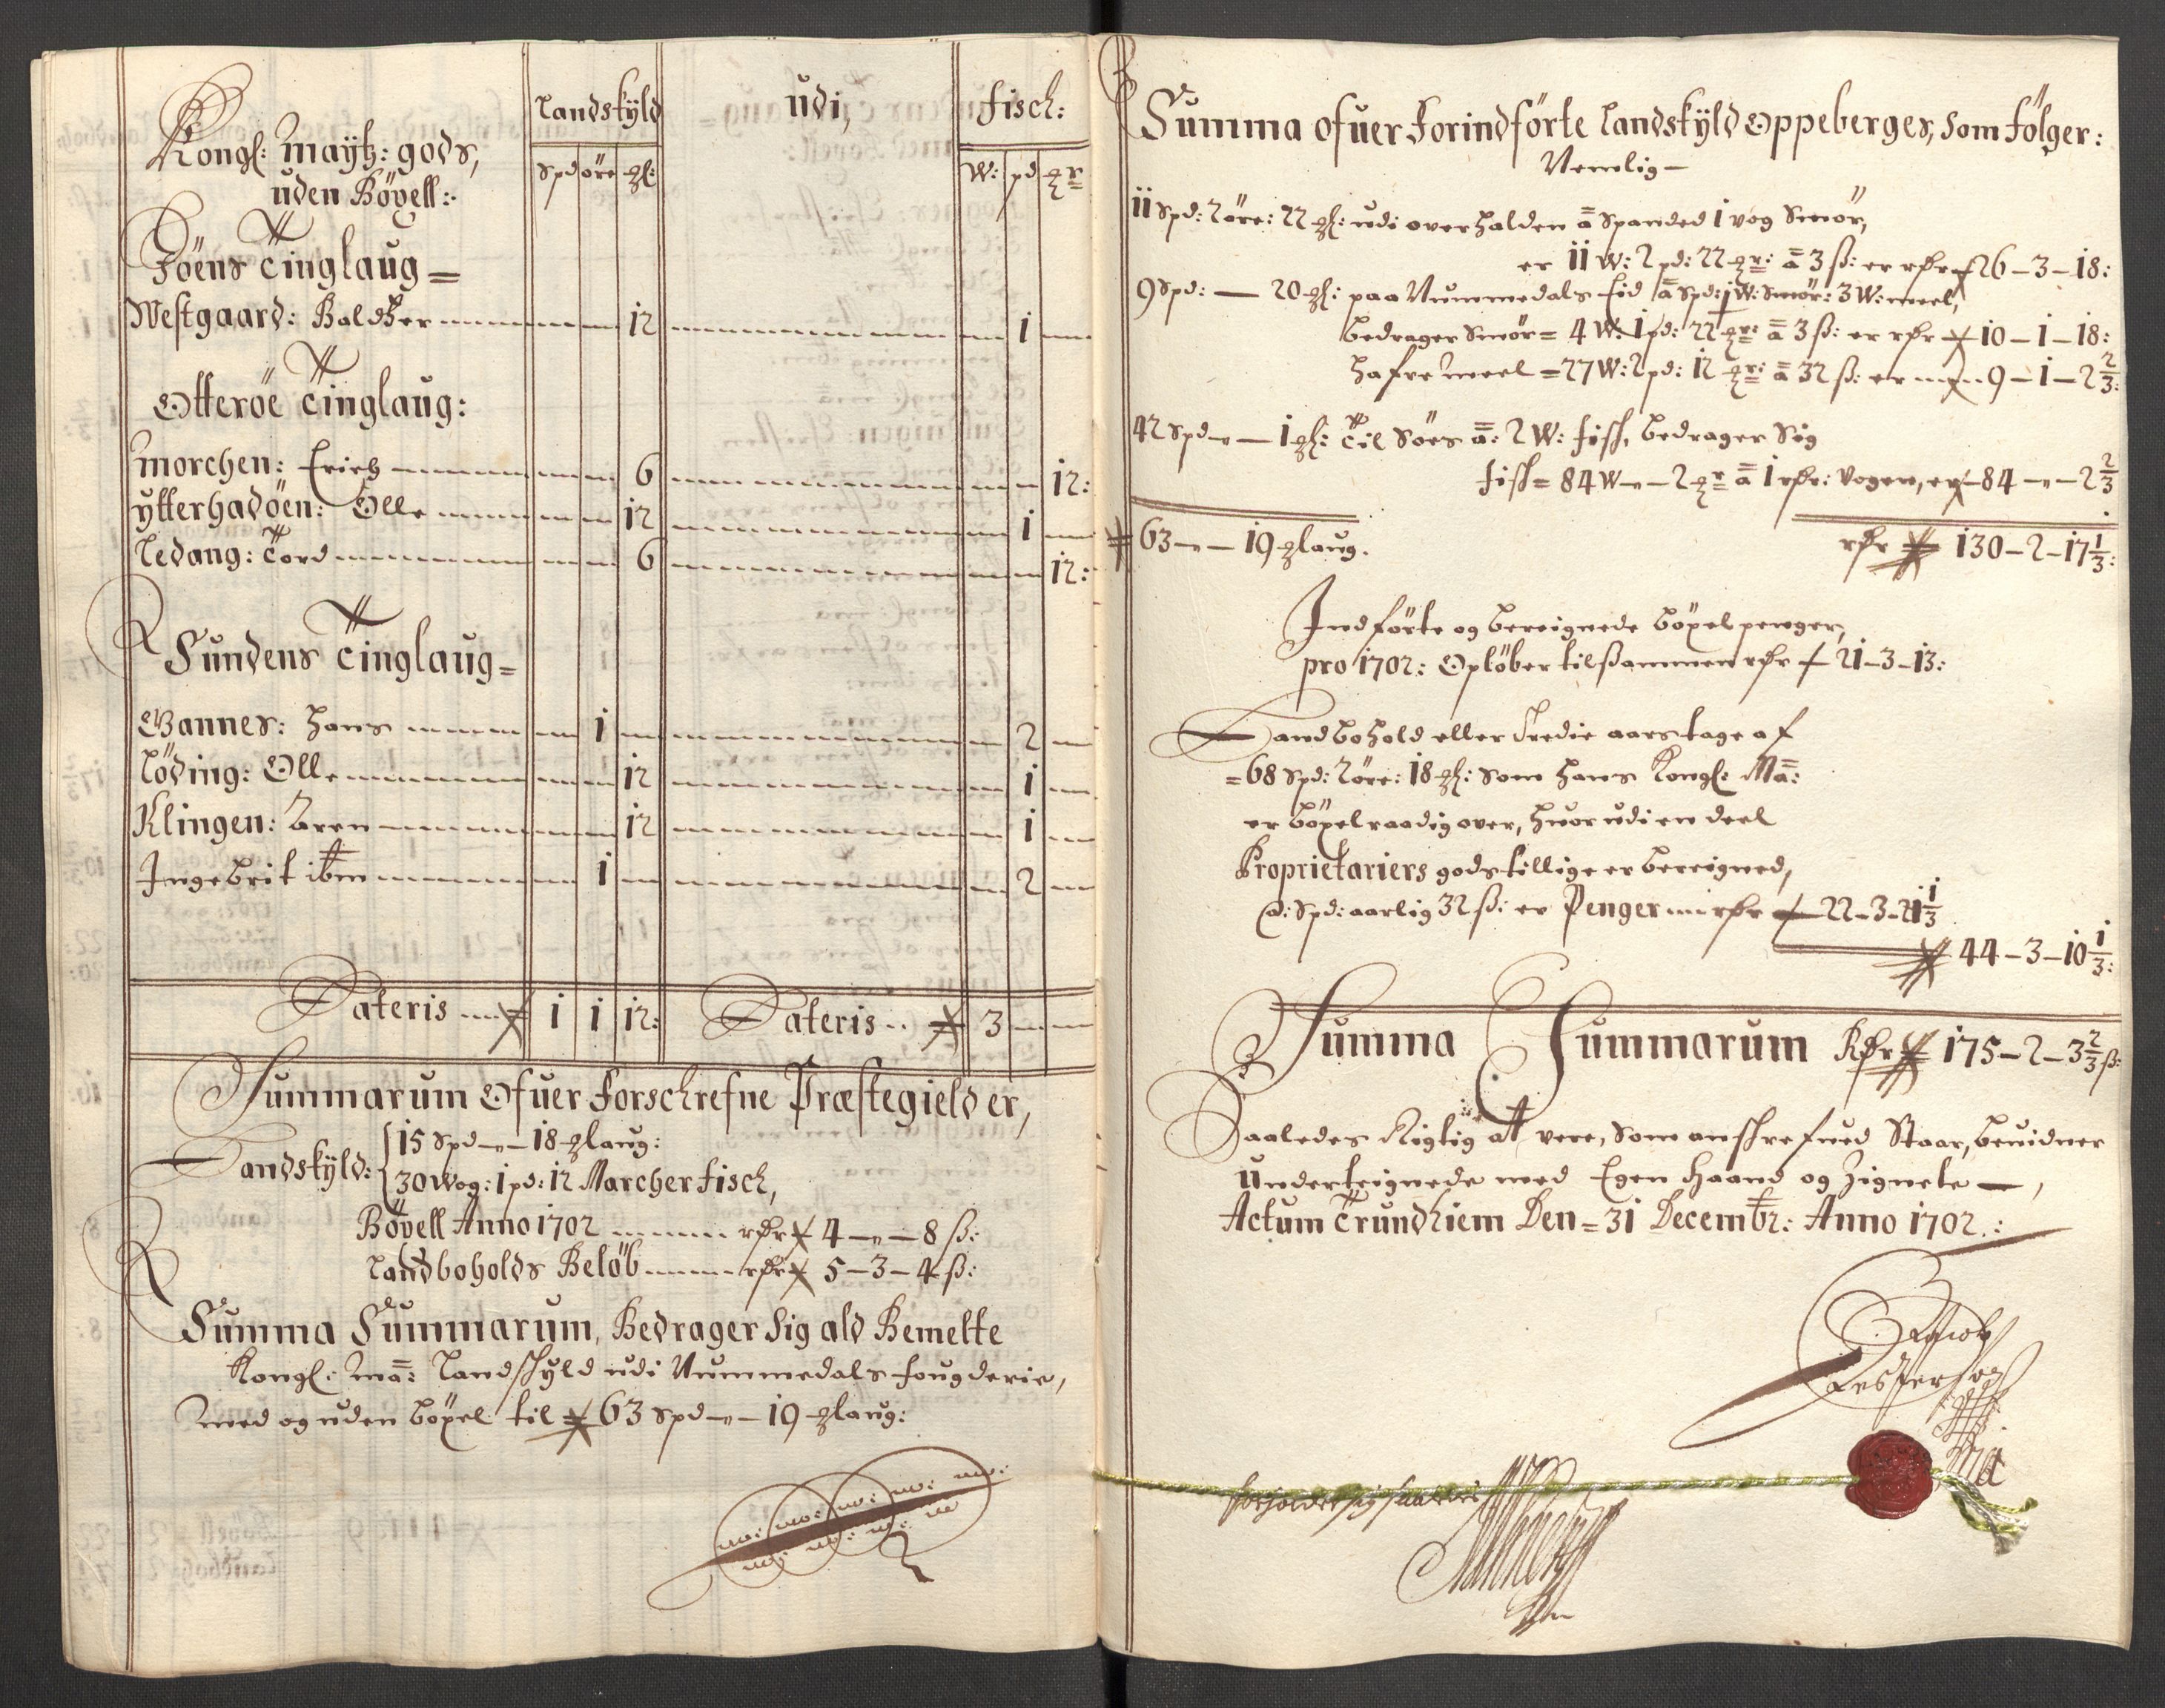 Kongl: Maÿtz: gods,
uden Böpell:
Landskÿld
udi,
fisch:
Spd öre gl:
W: pd
Föens Tinglaug =
Westgaard: Baldtzer 12 1
Otteröe Tinglaug:
Morchen: Erich 6 12:
ytterhadöen: Olle 12 1
Ledang: Tord 6 12:
Sundens Tinglaug =
Bannes: Hans 1 2
Löding: Olle 12 1
Klingen: Aren 12 1
Ingebrit ibm 1 2
Lateris 1 1 12: Lateris 3
Summarum Ofuer Forschrefne Præstegield er,
Landskÿld: 15 Spd – 18 glaug:
30 Wog: 1 pd: 12 Marcher fisch,
Böpell Anno 1702 rdr 4 – „ – 8 ß:
Landboholds Belöb rdr 5 – 3 – 4 ß:
Summa Summarum, Bedrager Sig ald Bemelte
Kongl: Ma: Landskyld udi Nummedals fougderie,
med og uden böxel til 63 Spd – „ – 19 glaug:
Summa ofuer Forindförte Landskÿld Oppeberger, som fölger:
Nemlig –
11 Spd: 2 öre: 22 gl: udi overhalden a Spanded 1 vog Smör,
er 11 W: 2 pd: 22 a 3 ß: er rdr 26 – 3 – 18:
9 Spd: — 20 gl: paa Nummedals Eid a Spd: 1 W: Smör: 3 W: meel,
bedrager Smör = 4 W: 1 pd: 22 a 3 ß: er rdr 10 – 1 – 18:
hafre meel = 27 W: 2 pd: 12 a 32 ß: er 9 – 1 – 2 2/3:
42 Spd – „ — 1 gl: Til Söes a: 2 W: fisk, bedrager Sig
fisk = 84 W – „ – 2 a 1 rdr: Vogen, er 84 – „ – 2 2/3
63 – „ – 19 glaug. rdr 130 – 2 – 17 1/3:
Indförte og bereignede böxel penger,
pro 1702: Oplöber tilsammen rdr 21 – 3 – 13:
Landbohold eller Tredie aars tage af
= 68 Spd: 2 öre: 18 gl: som hans Kongl: Ma:
er böxel raadig over, huor udi en deel
Proprietariers gods tillige er bereigned,
a: Spd: aarlig 32 ß: er Penger rdr 22 – 3 – 21 1/3
44 – 3 – 10 1/3:
Summa Summarum Rdr 175 – 2 – 3 2/3 ß:
Saaledes Rigtig at vere, som anskrefued Staar, beuidner
underteignede med Egen Haand og Zignete —,
Actum Trundhiem Den = 31 Decembr: Anno 1702.: